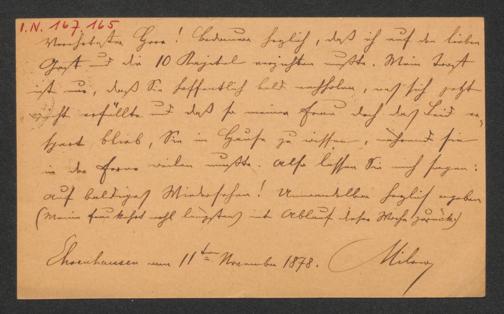 I.N. 167.165
Verehrtester Herr! Bedaure herzlich, daß ich auf den lieben
Gast und die 10 Kapitel verzichten mußte. Mein Trost
ist nur, daß Sie hoffentlich bald nachholen, was sich jetzt
nicht erfüllte und daß so meiner Frau doch das Leid er-
spart blieb, Sie im Hause zu wissen, während sie
in der Ferne weilen mußte. Also lassen Sie mich sagen:
auf baldiges Wiedersehen! Unwandelbar herzlich ergeben
(Meine Frau kehrt wohl längstens mit Ablauf dieser Woche zurück)
Ehrenhausen am 11ten November 1878. Milow